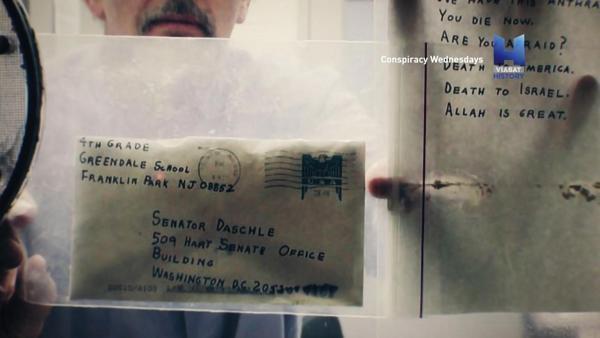 THIS ANTHRA
YOU DIE NOW.
ARE YOU AFRAID?
DEATH AMERICA.
DEATH TO ISRAEL.
ALLAH IS GREAT.
Conspiracy Wednesdays
VIASAT
HISTORY
4TH GRADE
GREENDALE SCHOOL
FRANKLIN PARK NJ 08852
USA
SENATOR DASCHLE
509 HART SENATE OFFICE
BUILDING
WASHINGTON D.C.